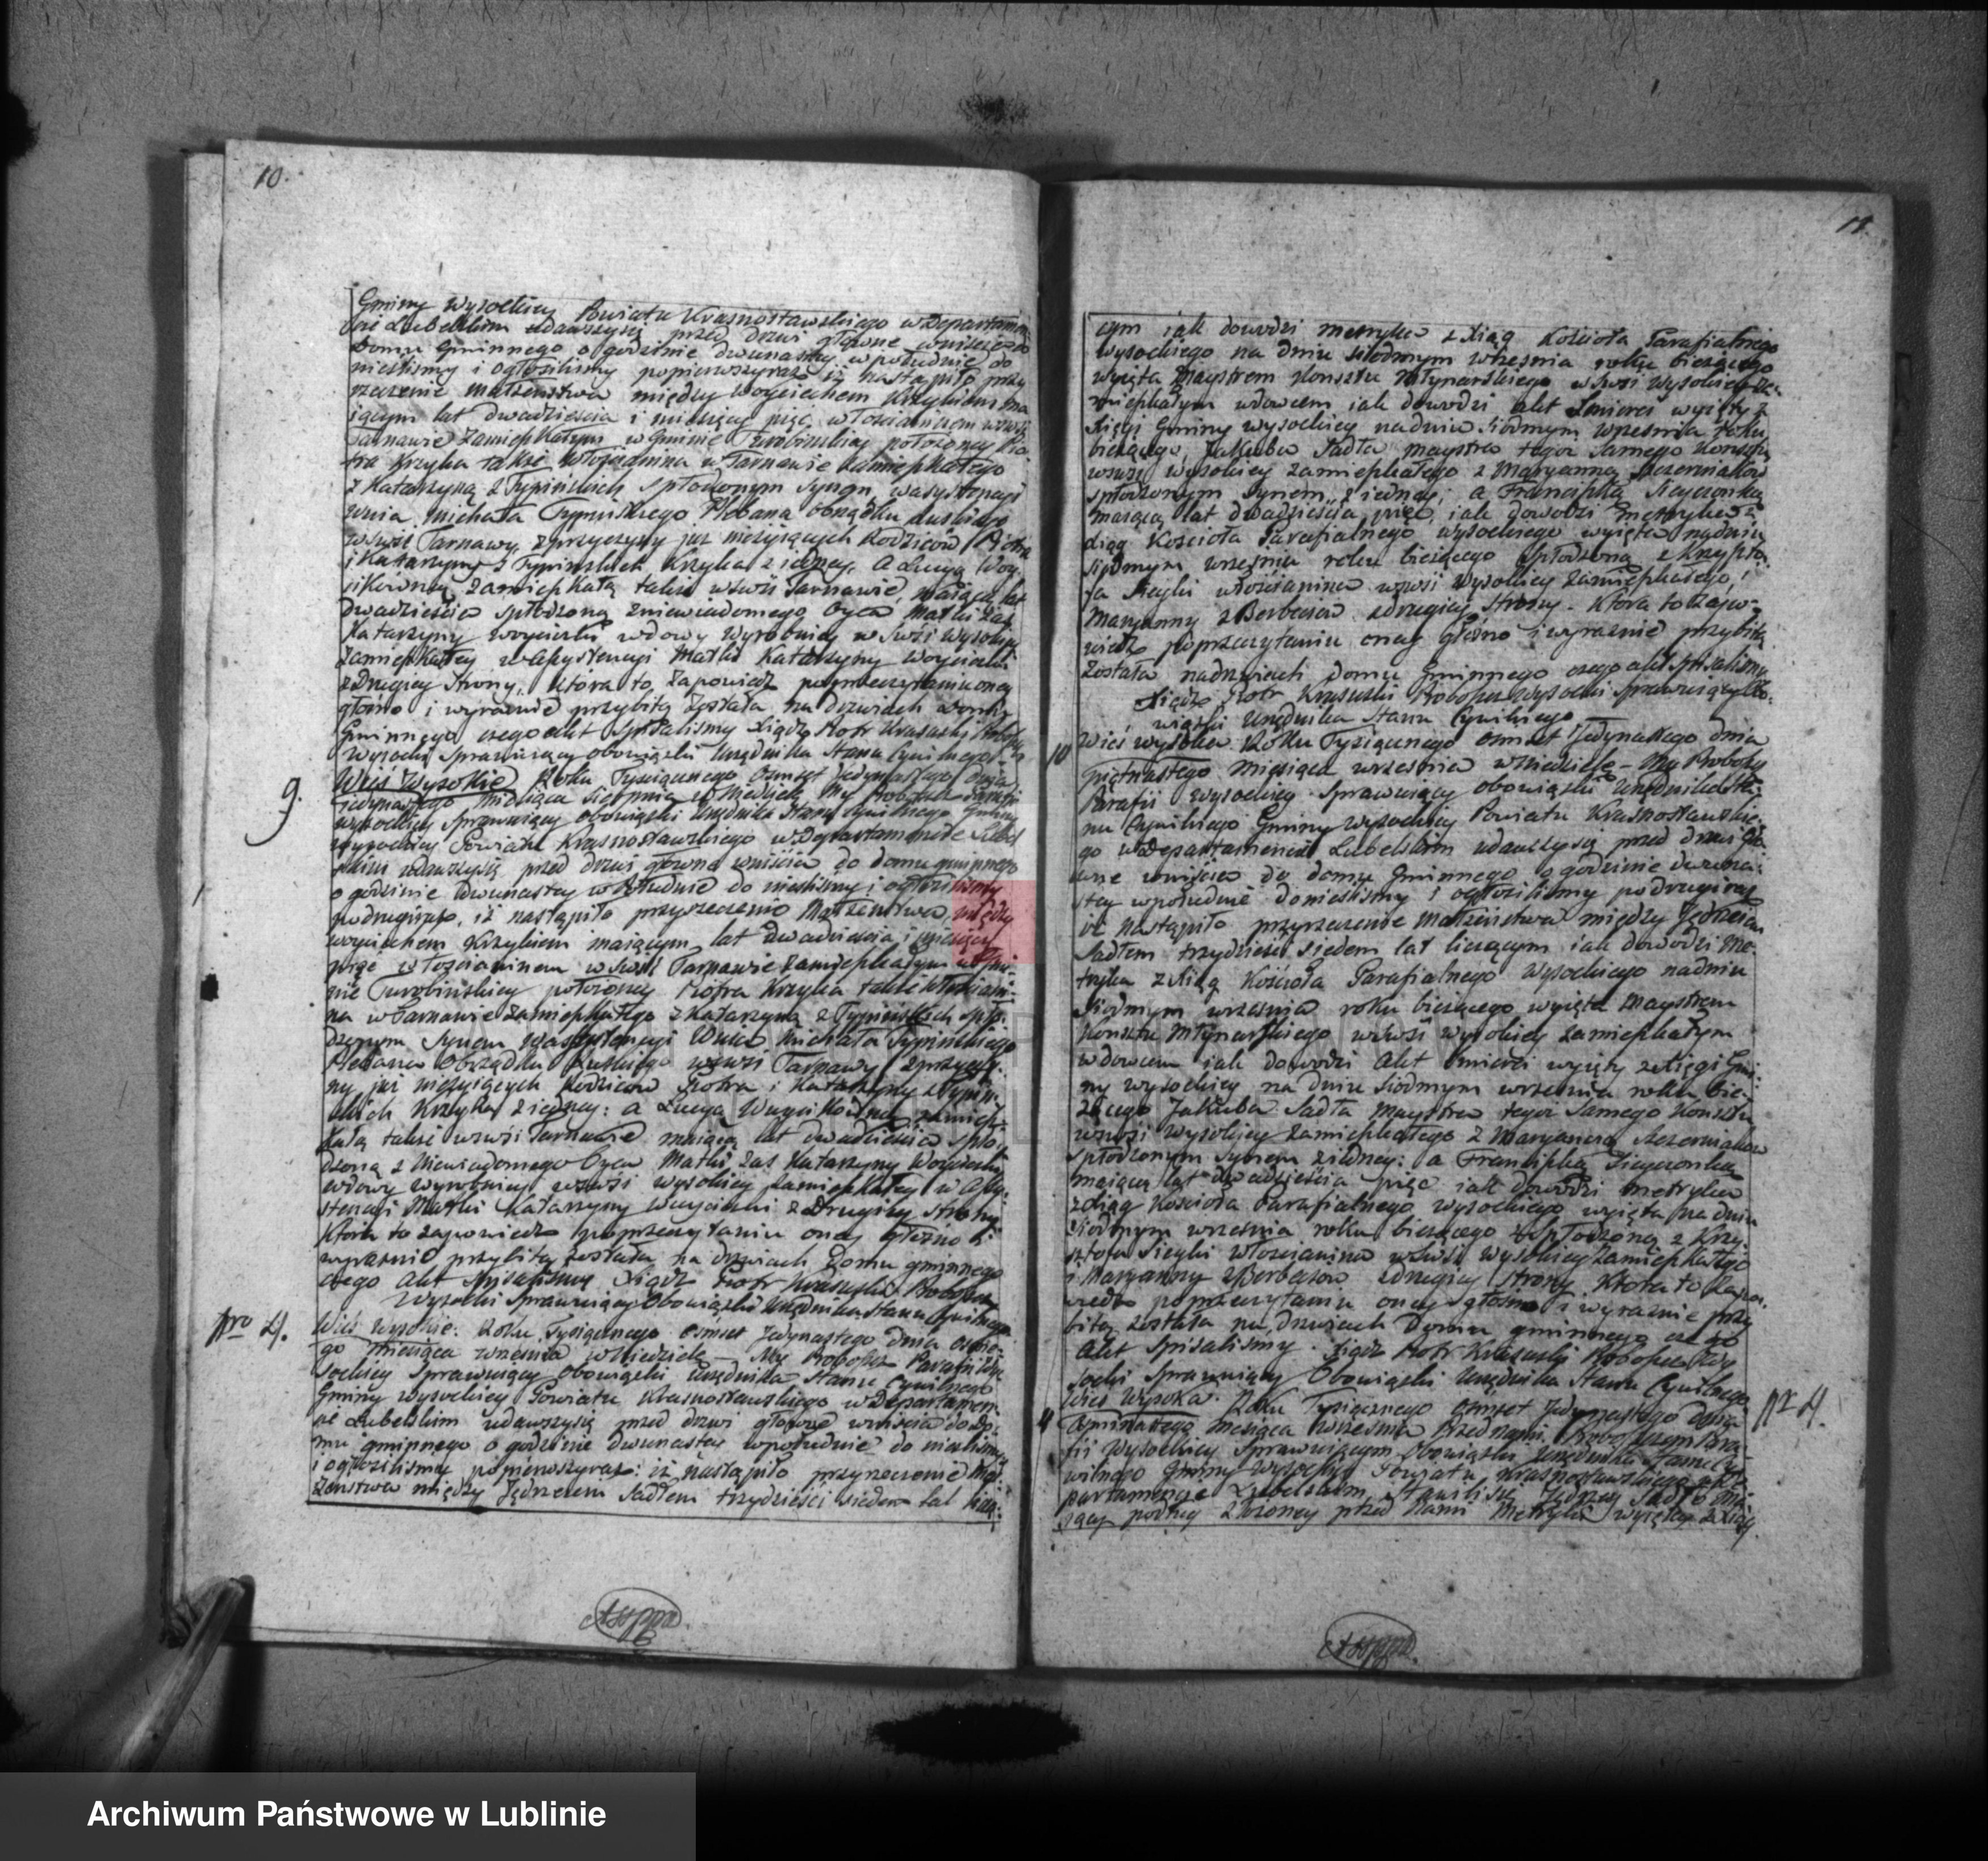 10.
Gminy Wysockiey Powiatu Krasnostawskiego w Departamen
cie Lubelskim udawszysię przed drzwi głowne wniścia do
Domu Gminnego o godzinie dwunastey w południe do
nieśliśmy i ogłosiliśmy popierwszyraz iż nastąpiło przy
rzeczenie małżeństwa między Woyciechem Krzykiem ma
iącym lat dwadzieścia i miesięcy pięć, włościaninem wewsi
Tarnawie zamieszkałym w Gminie Turobinskiey położoney Pio
tra Krzyka także włościanina w Tarnawie zamieszkałego
z Katarzyną z Typińskich spłodzonym synem w asystencyi
wuia Michała Typinskiego Plebana obrządku Ruskiego
wewsi Tarnawy z przyczyny już nieżyiących Rodziców Piotra
i Katarzyny z Typinskich Krzyka z iedney, a Łucyą Woy
cikowną zamieszkałą także wewsi Tarnawie, maiącą lat
dwadzieścia spłodzoną z niewiadomego Oyca Matki zaś
Katarzyny Woycicki wdowy wyrobnicy w wsi Wysokiey
zamieszkałey w Assystencyi Matki Katarzyny Woycicki
z Drugiey Strony, która to zapowiedz poprzeczytaniu oney
głośno i wyraźnie przybitą została na drzwiach Domu
Gminnego czego akt spisaliśmy Xiądz Piotr Krasuski Proboszcz
Wysocki Sprawuiący obowiązki Urzędnika Stanu Cywilnego
9.
Wieś Wysokie Roku Tysiącznego Osmset Jedynastego dnia
Jedynastego Miesiąca Sierpnia w Niedzielę My Proboszcz Parafii
Wysockiey Sprawuiący obowiązki Urzędnika Stanu Cywilnego Gminy
Wysockiey Powiatu Krasnostawskiego w Departamencie Lubel
skim udawszysię przed drzwi głowne wniścia do domu gminnego
o godzinie dwunastey w Południe do nieśliśmy i ogłosiliśmy
podrugiraz, iż nastąpiło przyrzeczenie Małżeństwa między
Woyciechem Krzykiem maiącym lat dwadzieścia i miesięcy
pięć włościaninem w wsi Tarnawie zamieszkałym w Gmi
nie Turobińskiey położoney Piotra Krzyka także włościani
na w Tarnawie zamieszkałego z Katarzyną z Typińskich spło
dzonym Synem w assystencyi Wuia Michała Typińskiego
Plebana Obrządku Ruskiego wewsi Tarnawy z przyczy
ny już nieżyiących Rodziców Piotra i Katarzyny z Typin
skich Krzyka z iedney: a Łucyą Woycikowną zamiesz
kałą także wewsi Tarnawie maiącą lat dwadzieścia spło
dzoną z Niewiadomego Oyca Matki zaś Katarzyny Woycicki
wdowy wyrobnicy wewsi Wysokiey zamieszkałey w Assy
stencyi Matki Katarzyny Woycicki z Drugiey strony
Która to zapowiedz poprzeczytaniu oney głośno i
wyraźnie przybitą została na drzwiach Domu gminnego
czego Akt Spisaliśmy Xiądz Piotr Krasuski Proboszcz
Wysocki Sprawuiący Obowiązki Urzędnika Stanu Cywilnego
Nro 4.
Wieś Wysokie: Roku Tysiącznego Osmset Jedynastego dnia osme
go Miesiąca września w Niedzielę – My Proboszcz Parafii Wy
sockiey Sprawuiący Obowiązki Urzędnika Stanu Cywilnego
Gminy Wysockiey Powiatu Krasnostawskiego w Departamen
cie Lubelskim udawszysię przed drzwi głowne wniścia do do
mu gminnego o godzinie dwunastey w południe do nieśliśmy
i ogłosiliśmy popierwszyraz: iż nastąpiło przyrzeczenie Mał
żeństwa między Jędrzeiem Sadłem trzydzieści siedem lat liczą
11.
cym iak dowodzi metryka z Xiąg Kościoła Parafialnego
Wysockiego na dniu siódmym września roku bieżącego
wyięta Maystrem Konsztu Młynarskiego w wsi Wysokiey za
mieszkałym wdowcem iak dowodzi akt śmierci wyięty z
Xięgi Gminy Wysockiey na dniu siódmym września roku
bieżącego, Jakuba Sadła maystra tegoż samego Konsztu
wewsi Wysokiey zamieszkałego z Maryanną Szczerniaków
spłodzonym synem, z iedney; a Franciszką Sieyczonką
maiącą lat dwadzieścia pięć, iak dowodzi metryka z
Xiąg Kościoła Parafialnego wysockiego wyięta na dniu
siódmym września roku bieżącego spłodzoną z Krzyszto
fa Sieyki włościanina wewsi Wysokiey zamieszkałego, i
Maryanny z Berbeciow z drugiey strony – Która to zapo
wiedz poprzeczytaniu oney głośno i wyraźnie przybitą
została na drzwiach domu Gminnego czego akt spisaliśmy
Xiądz Piotr Krasuski Proboszcz Wysocki Sprawuiący Obo
wiązki Urzędnika Stanu Cywilnego
10
Wieś Wysoka Roku Tysiącznego osmset Jedynastego dnia
piętnastego Miesiąca września w Niedzielę – My Proboszcz
Parafii Wysockiey Sprawuiący obowiązki Urzędnika Sta
nu Cywilnego Gminy Wysockiey Powiatu Krasnostawskie
go w Departamencie Lubelskim udawszysię przed drzwi gło
wne wniścia do domu Gminnego o godzinie dwuna
stey w południe donieśliśmy i ogłosiliśmy podrugiraz
iż nastąpiło przyrzeczenie małżeństwa między Jędrzeiem
Sadłem trzydzieści siedem lat liczącym iak dowodzi Me
tryka z Xiąg Kościoła Parafialnego Wysockiego na dniu
Siódmym września roku bieżącego wyięta Maystrem
Konsztu Młynarskiego wewsi Wysokiey zamieszkałym
wdowcem iak dowodzi Akt śmierci wyięty z Xięgi Gmi
ny Wysockiey na dniu siódmym września roku bie
żącego Jakuba Sadła Maystra tegoż Samego Konsztu
wewsi Wysokiey zamieszkałego z Maryanną Szczerniaków
spłodzonym Synem z iedney: a Franciszką Sieyczonką
maiącą lat dwadzieścia pięć iak dowodzi metryka
z Xiąg Kościoła Parafialnego Wysockiego wyięta na dniu
Siódmym września roku bieżącego spłodzoną z Krzy
sztofa Sieyki włościanina wewsi Wysokiey zamieszkałego
i Maryanny z Berbeciow z drugiey strony Która to zapo
wiedz poprzeczytaniu oney głośno i wyraźnie przy
bitą została na drzwiach Domu gminnego czego
Akt Spisaliśmy. Xiądz Piotr Krasuski Proboszcz Wy
socki Sprawuiący Obowiązki Urzędnika Stanu Cywilnego
Nr 4.
Wieś Wysoka. Roku Tysiącznego Osmset Jedynastego dnia
Miesiąca Września Przed nami Proboszczem Para
fii Wysockiey Sprawuiącym Obowiązki Urzędnika Stanu Cy
wilnego Gminy Wysockiey Powiatu Krasnostawskiego w De
partamencie Lubelskim, Stawiłsię Jędrzey Sadło ma
iący podług złożoney przed Nami Metryki wyiętey z Xiąg
Archiwum Państwowe w Lublinie